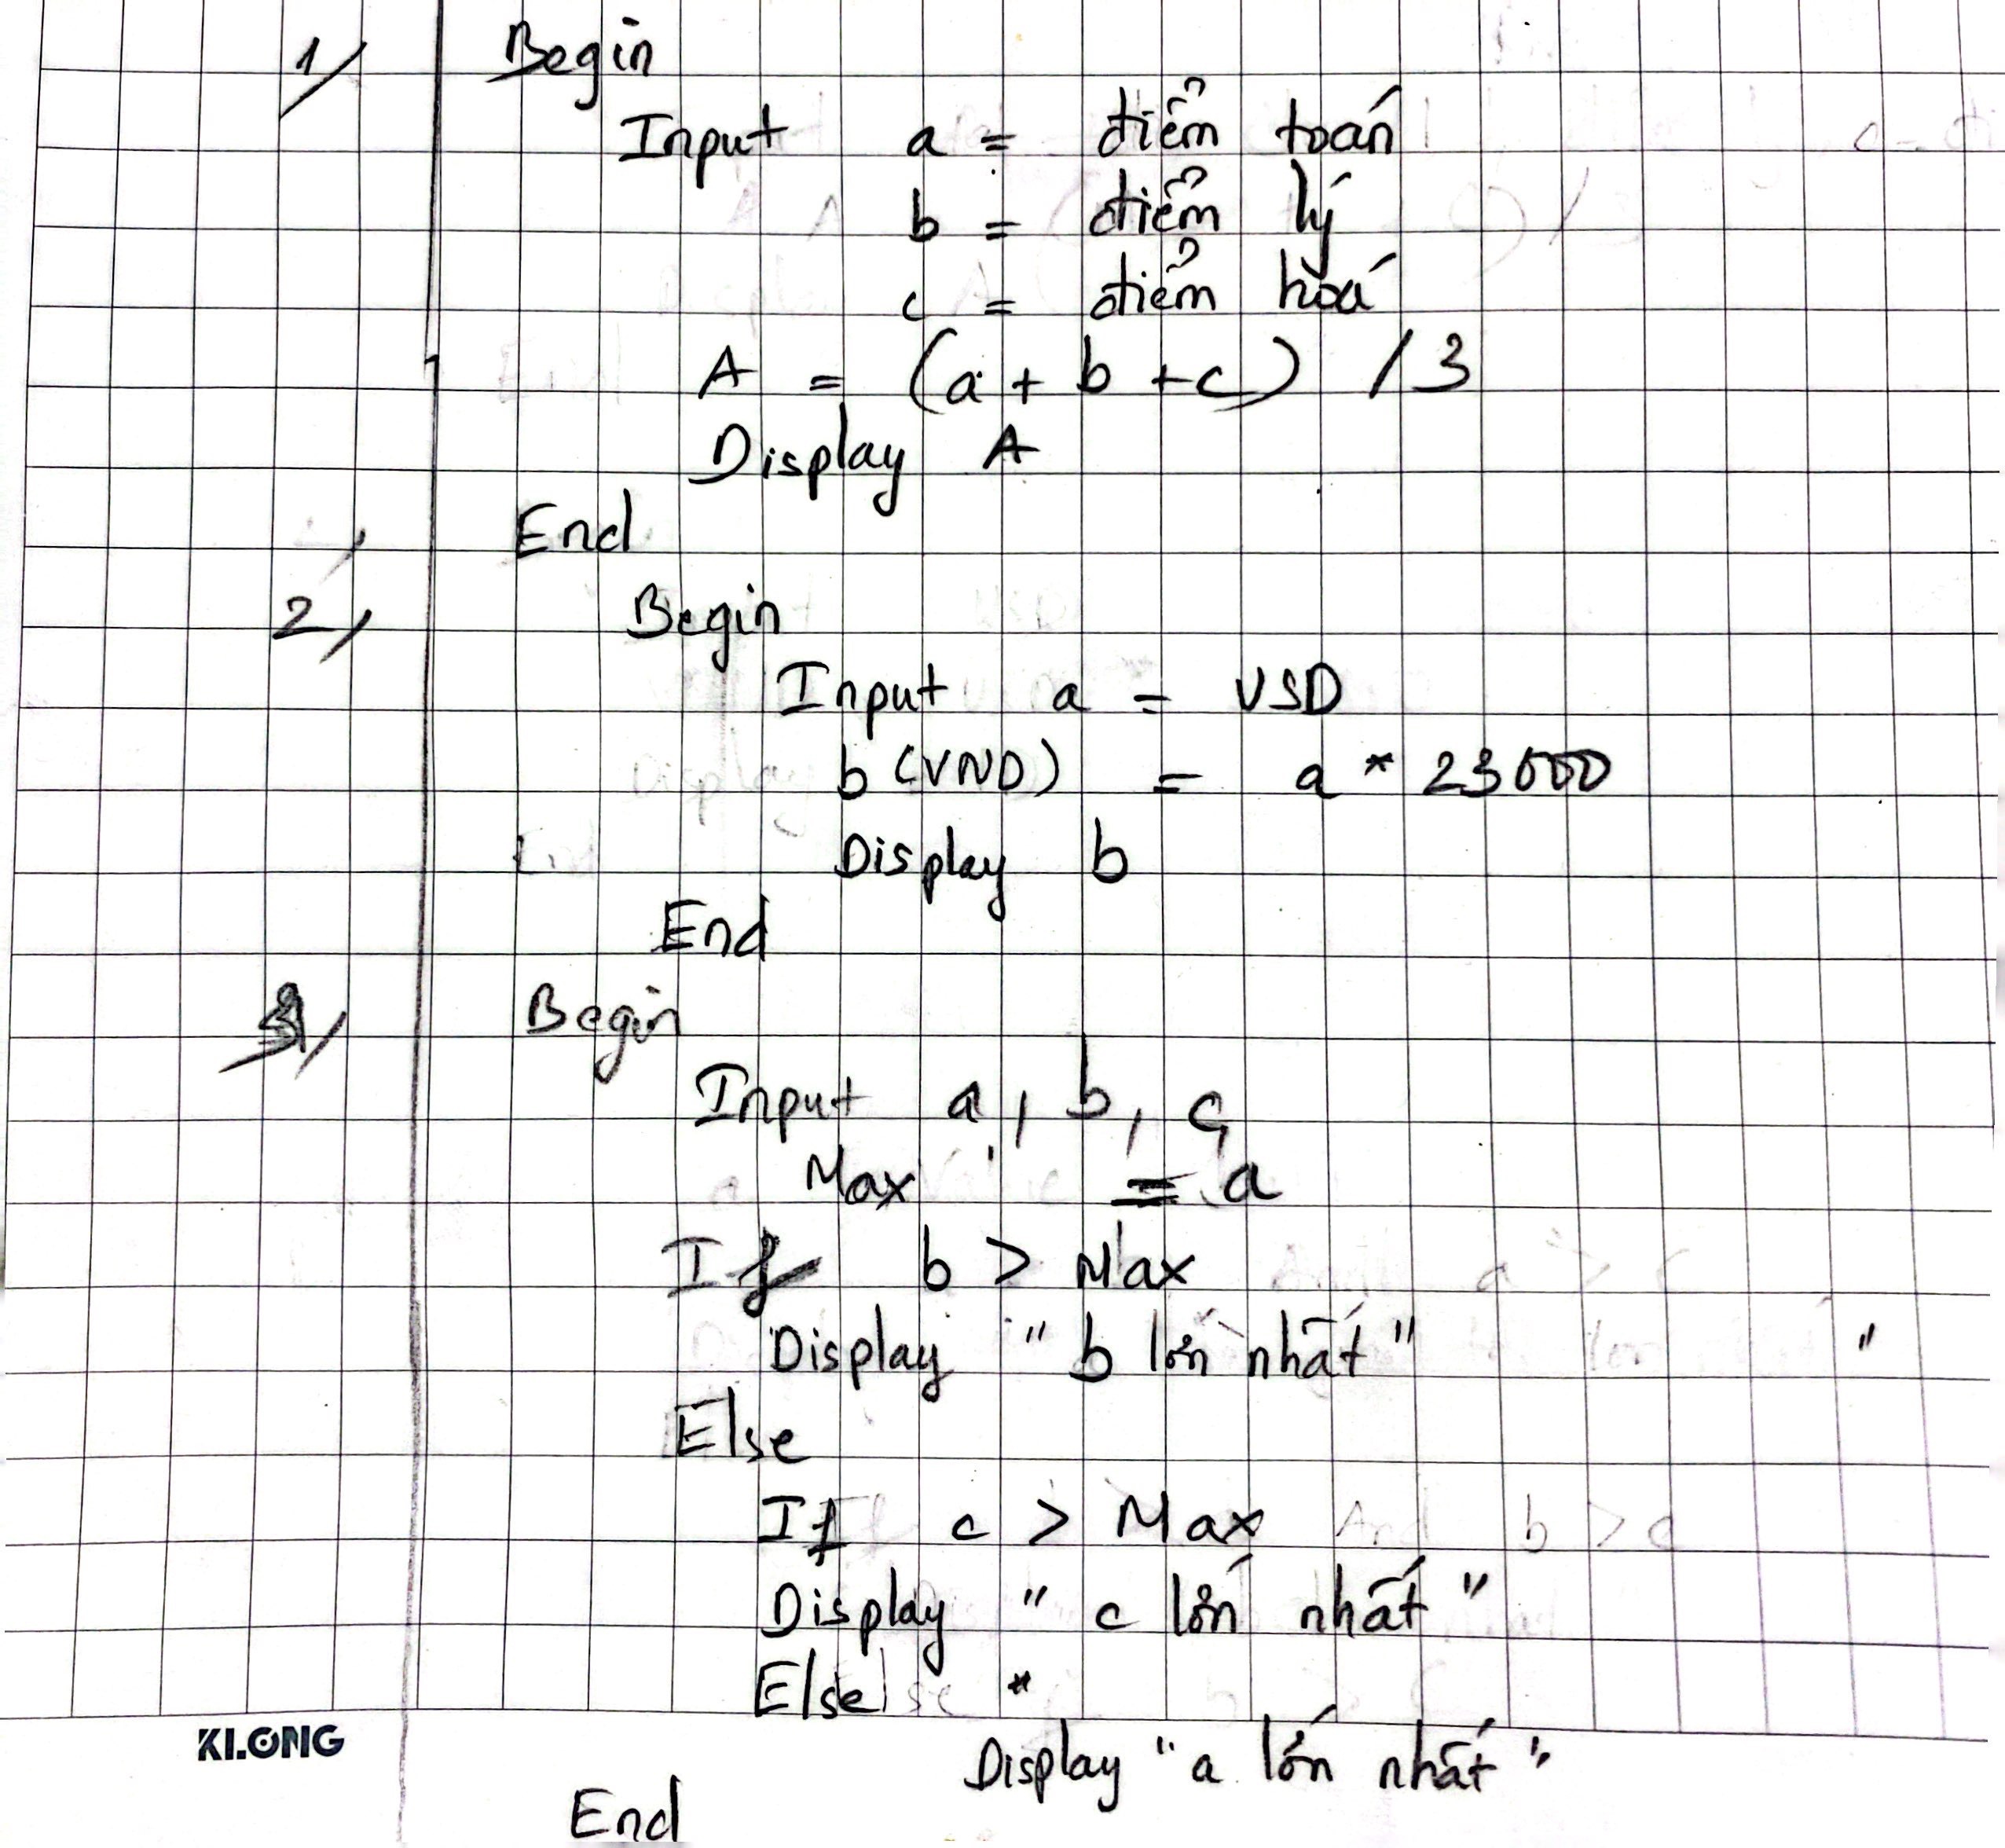 1/ Begin
Input a = điểm toán
b = điểm lý
c = điểm hoá
A = (a + b + c) / 3
Display A
End
2/ Begin
Input a = USD
b (VND) = a * 23000
Display b
End
3/ Begin
Input a, b, c,
Max = a
If b > Max
Display " b lớn nhất"
Else
If c > Max
Display " c lớn nhất "
Else *
Display " a lớn nhất "
End
KLONG